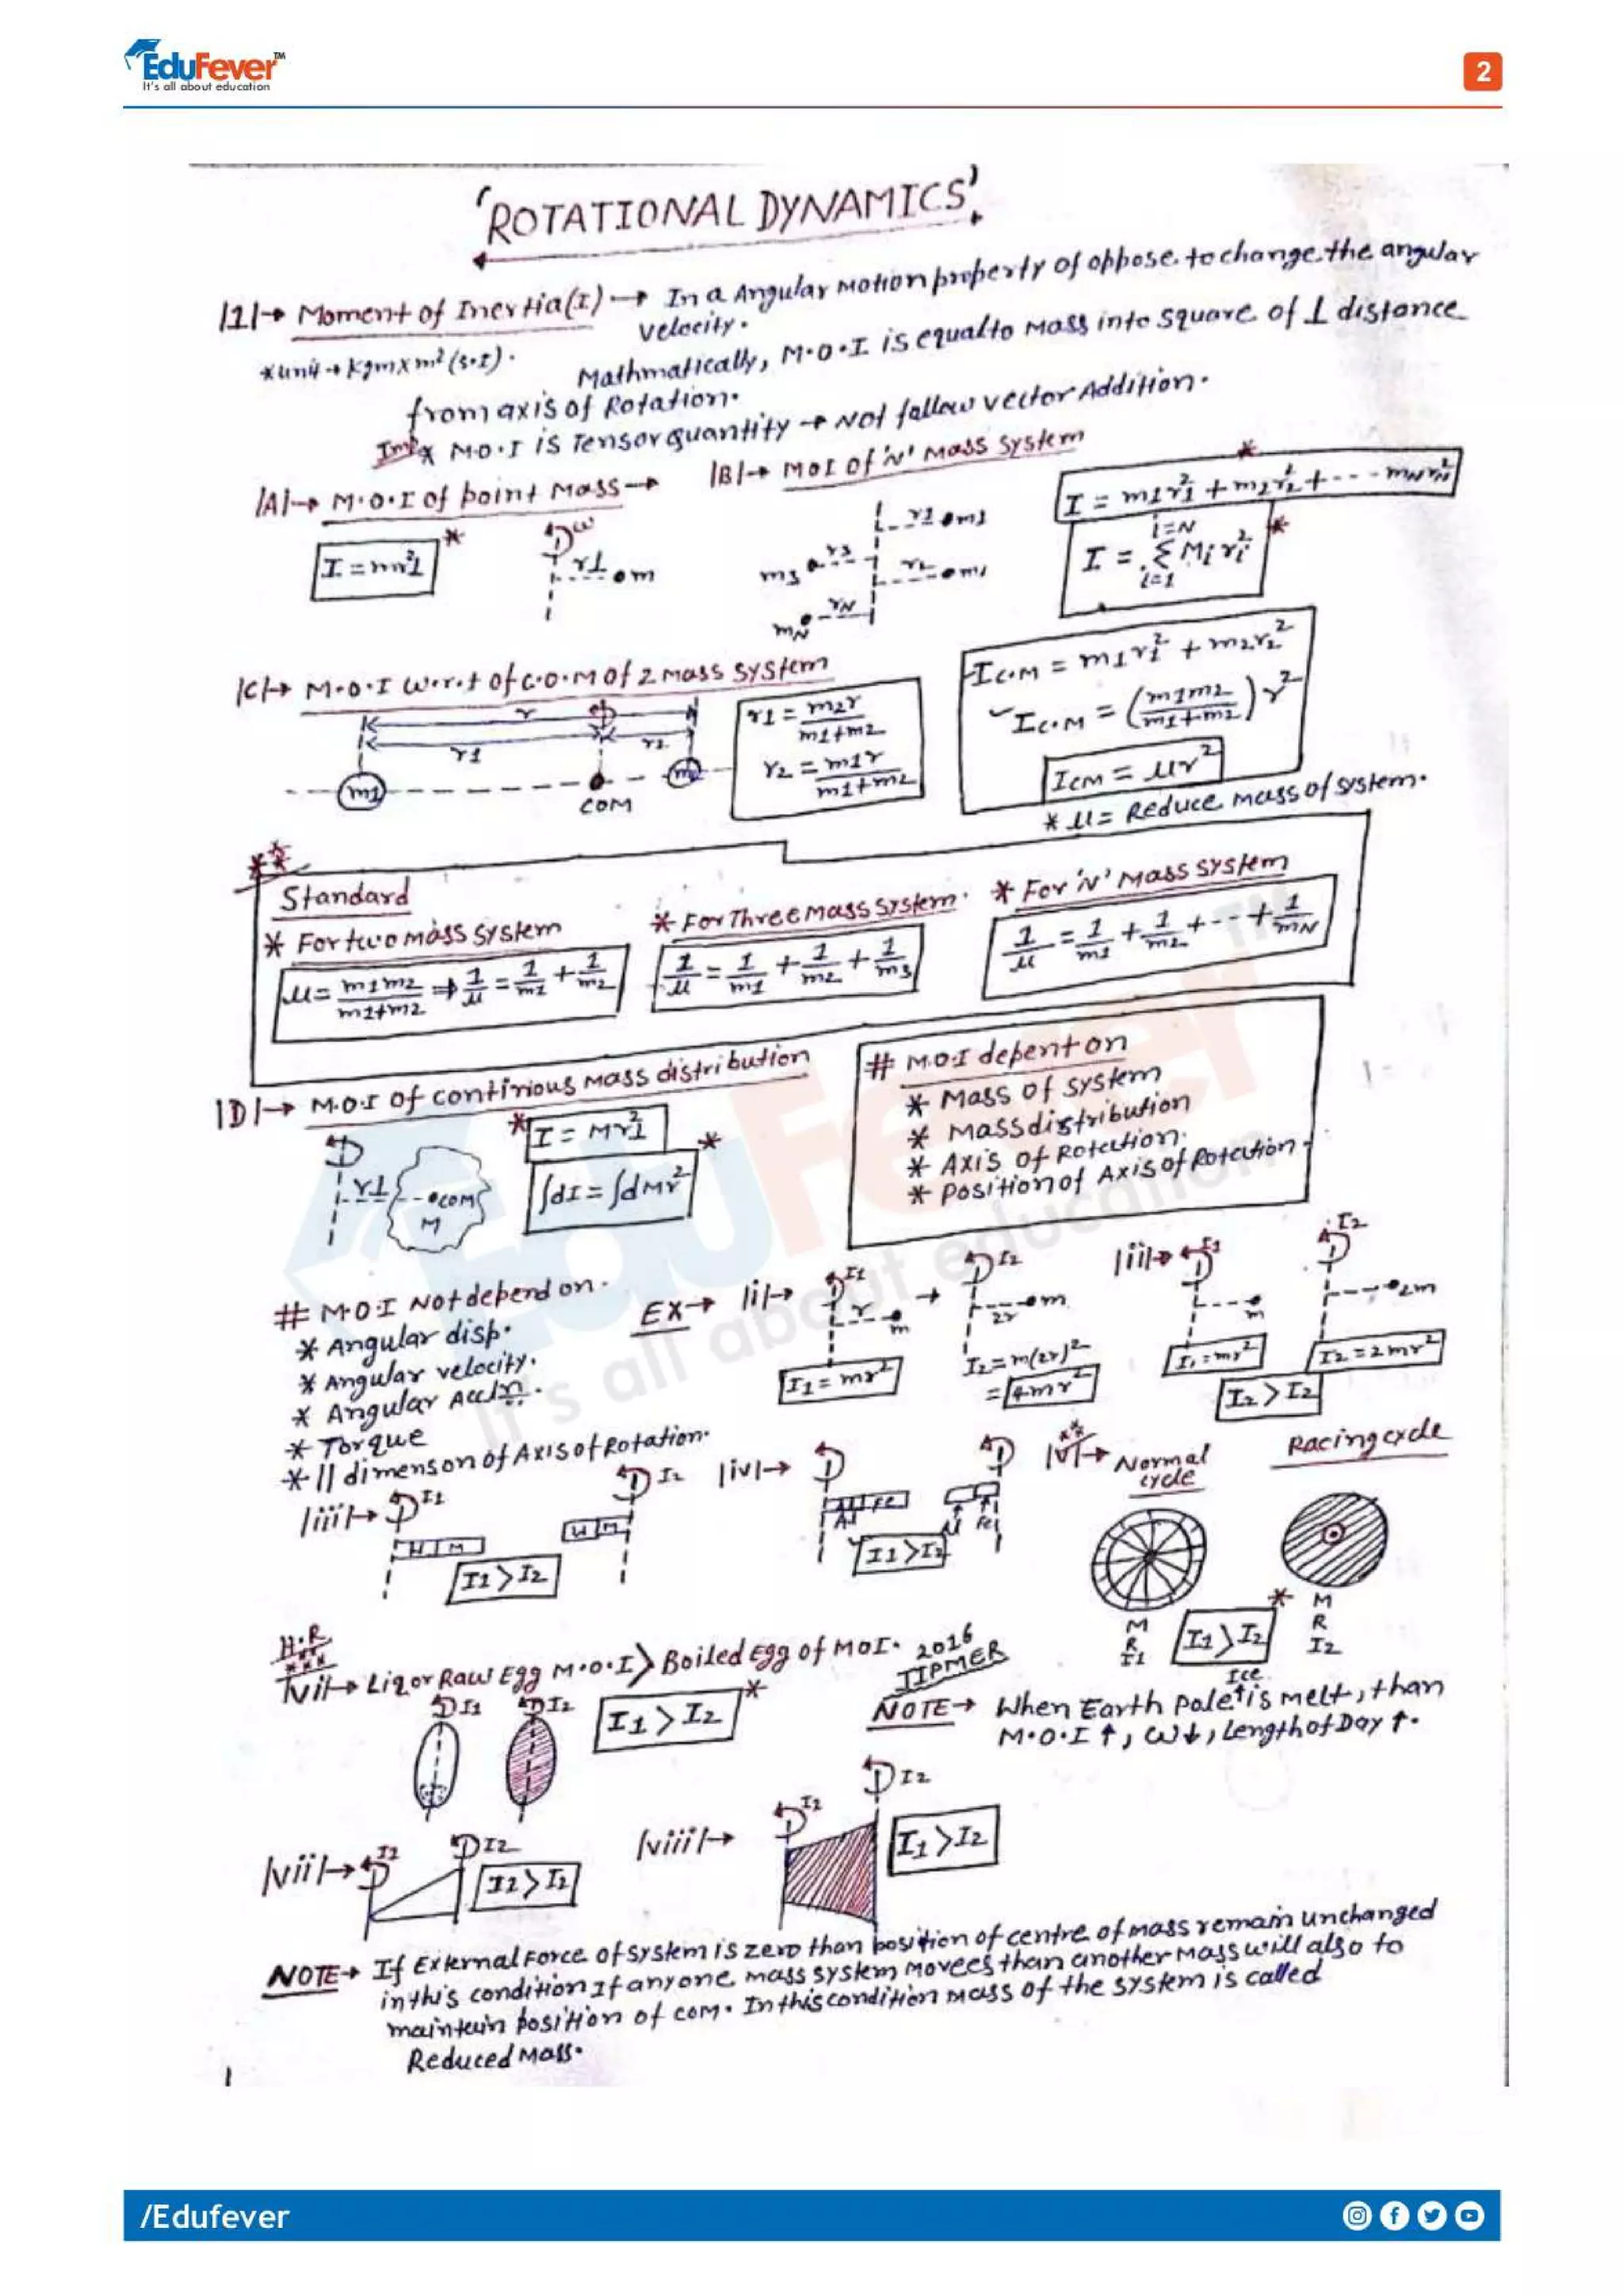 EduFever™
It's all about education
2
'ROTATIONAL DYNAMICS'
|1|→ Moment of Inertia(I) → In a Angular Motion property of oppose to change the angular
velocity.
*unit → kgm x m² (S.I).
Mathmatically, M.O.I is equal to Mass into square of ⊥ distance
from axis of Rotation.
Imp * M.O.I is Tensor quantity → Not follow vector Addition.
|A|→ M.O.I of point Mass →
|B|→ MOI of 'N' Mass system
I = m1r1² + m2r2² + --- mNrN²
I = mr²⊥
ω
r⊥ m
r1 m1
r3 m3
r2
rN mN
i=N
I = Σ Miri²
i=1
|C|→ M.O.I w.r.t of C.O.M of 2 mass system
r
r1 r2
m1 COM m2
r1 = m2r / m1+m2
r2 = m1r / m1+m2
IC.M = m1r1² + m2r2²
IC.M = (m1m2 / m1+m2) r²
ICM = μr²
* μ = Reduce mass of system.
Standard
* For two mass system
* For Three mass system.
* For 'N' Mass system
μ = m1m2 / m1+m2 ⇒ 1/μ = 1/m1 + 1/m2
1/μ = 1/m1 + 1/m2 + 1/m3
1/μ = 1/m1 + 1/m2 + -- + 1/mN
|D|→ M.O.I of continious Mass distribution
r⊥ COM
M
I = Mr²⊥
∫dI = ∫dMr²
# M.O.I depent on
* Mass of system
* Mass distribution
* Axis of Rotation.
* Position of Axis of Rotation.
# M.O.I Not depend on.
* Angular disp.
* Angular velocity.
* Angular Accln.
* Torque
* || dimenson of Axis of Rotation.
Ex→ |i|→ I1 r m → I2 2r m
I1 = mr²
I2 = m(2r)²
= 4mr²
|ii|→ I1 m I2 2m
I1 = mr² I2 = 2mr²
I2 > I1
|iii|→ I1 I2
I1 > I2
|iv|→
Al Fe
I1 > I2
|v|→ Normal cycle
Racing cycle
M
R
I1
I1 > I2
M
R
I2
H.R
|vi|→ Liq or Raw Egg M.O.I > Boiled Egg of MOI. 2016
JIPMER
I1 I2
I1 > I2
NOTE→ When Earth Pole Ice is melt, than
M.O.I ↑, ω↓, Length of Day ↑.
|vii|→ I1 I2
I1 > I2
|viii|→ I2
I1 > I2
NOTE→ If External Force of system is zero than position of centre of mass remain unchanged
in this condition If any one mass system movees than another Mass will also to
maintain position of com. In this condition Mass of the system is called
Reduced Mass.
/Edufever